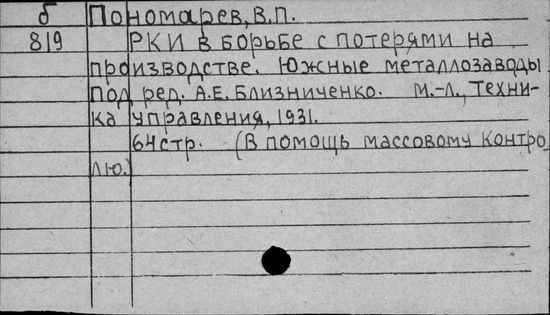 б Пономарев, В.П.
819 РКИ в борьбе с потерями на
производстве. Южные металлозаводы
Под ред. А.Е. Близниченко. М.-Л., Техни-
ка управления, 1931.
64стр. (В помощь массовому контро
лю.)